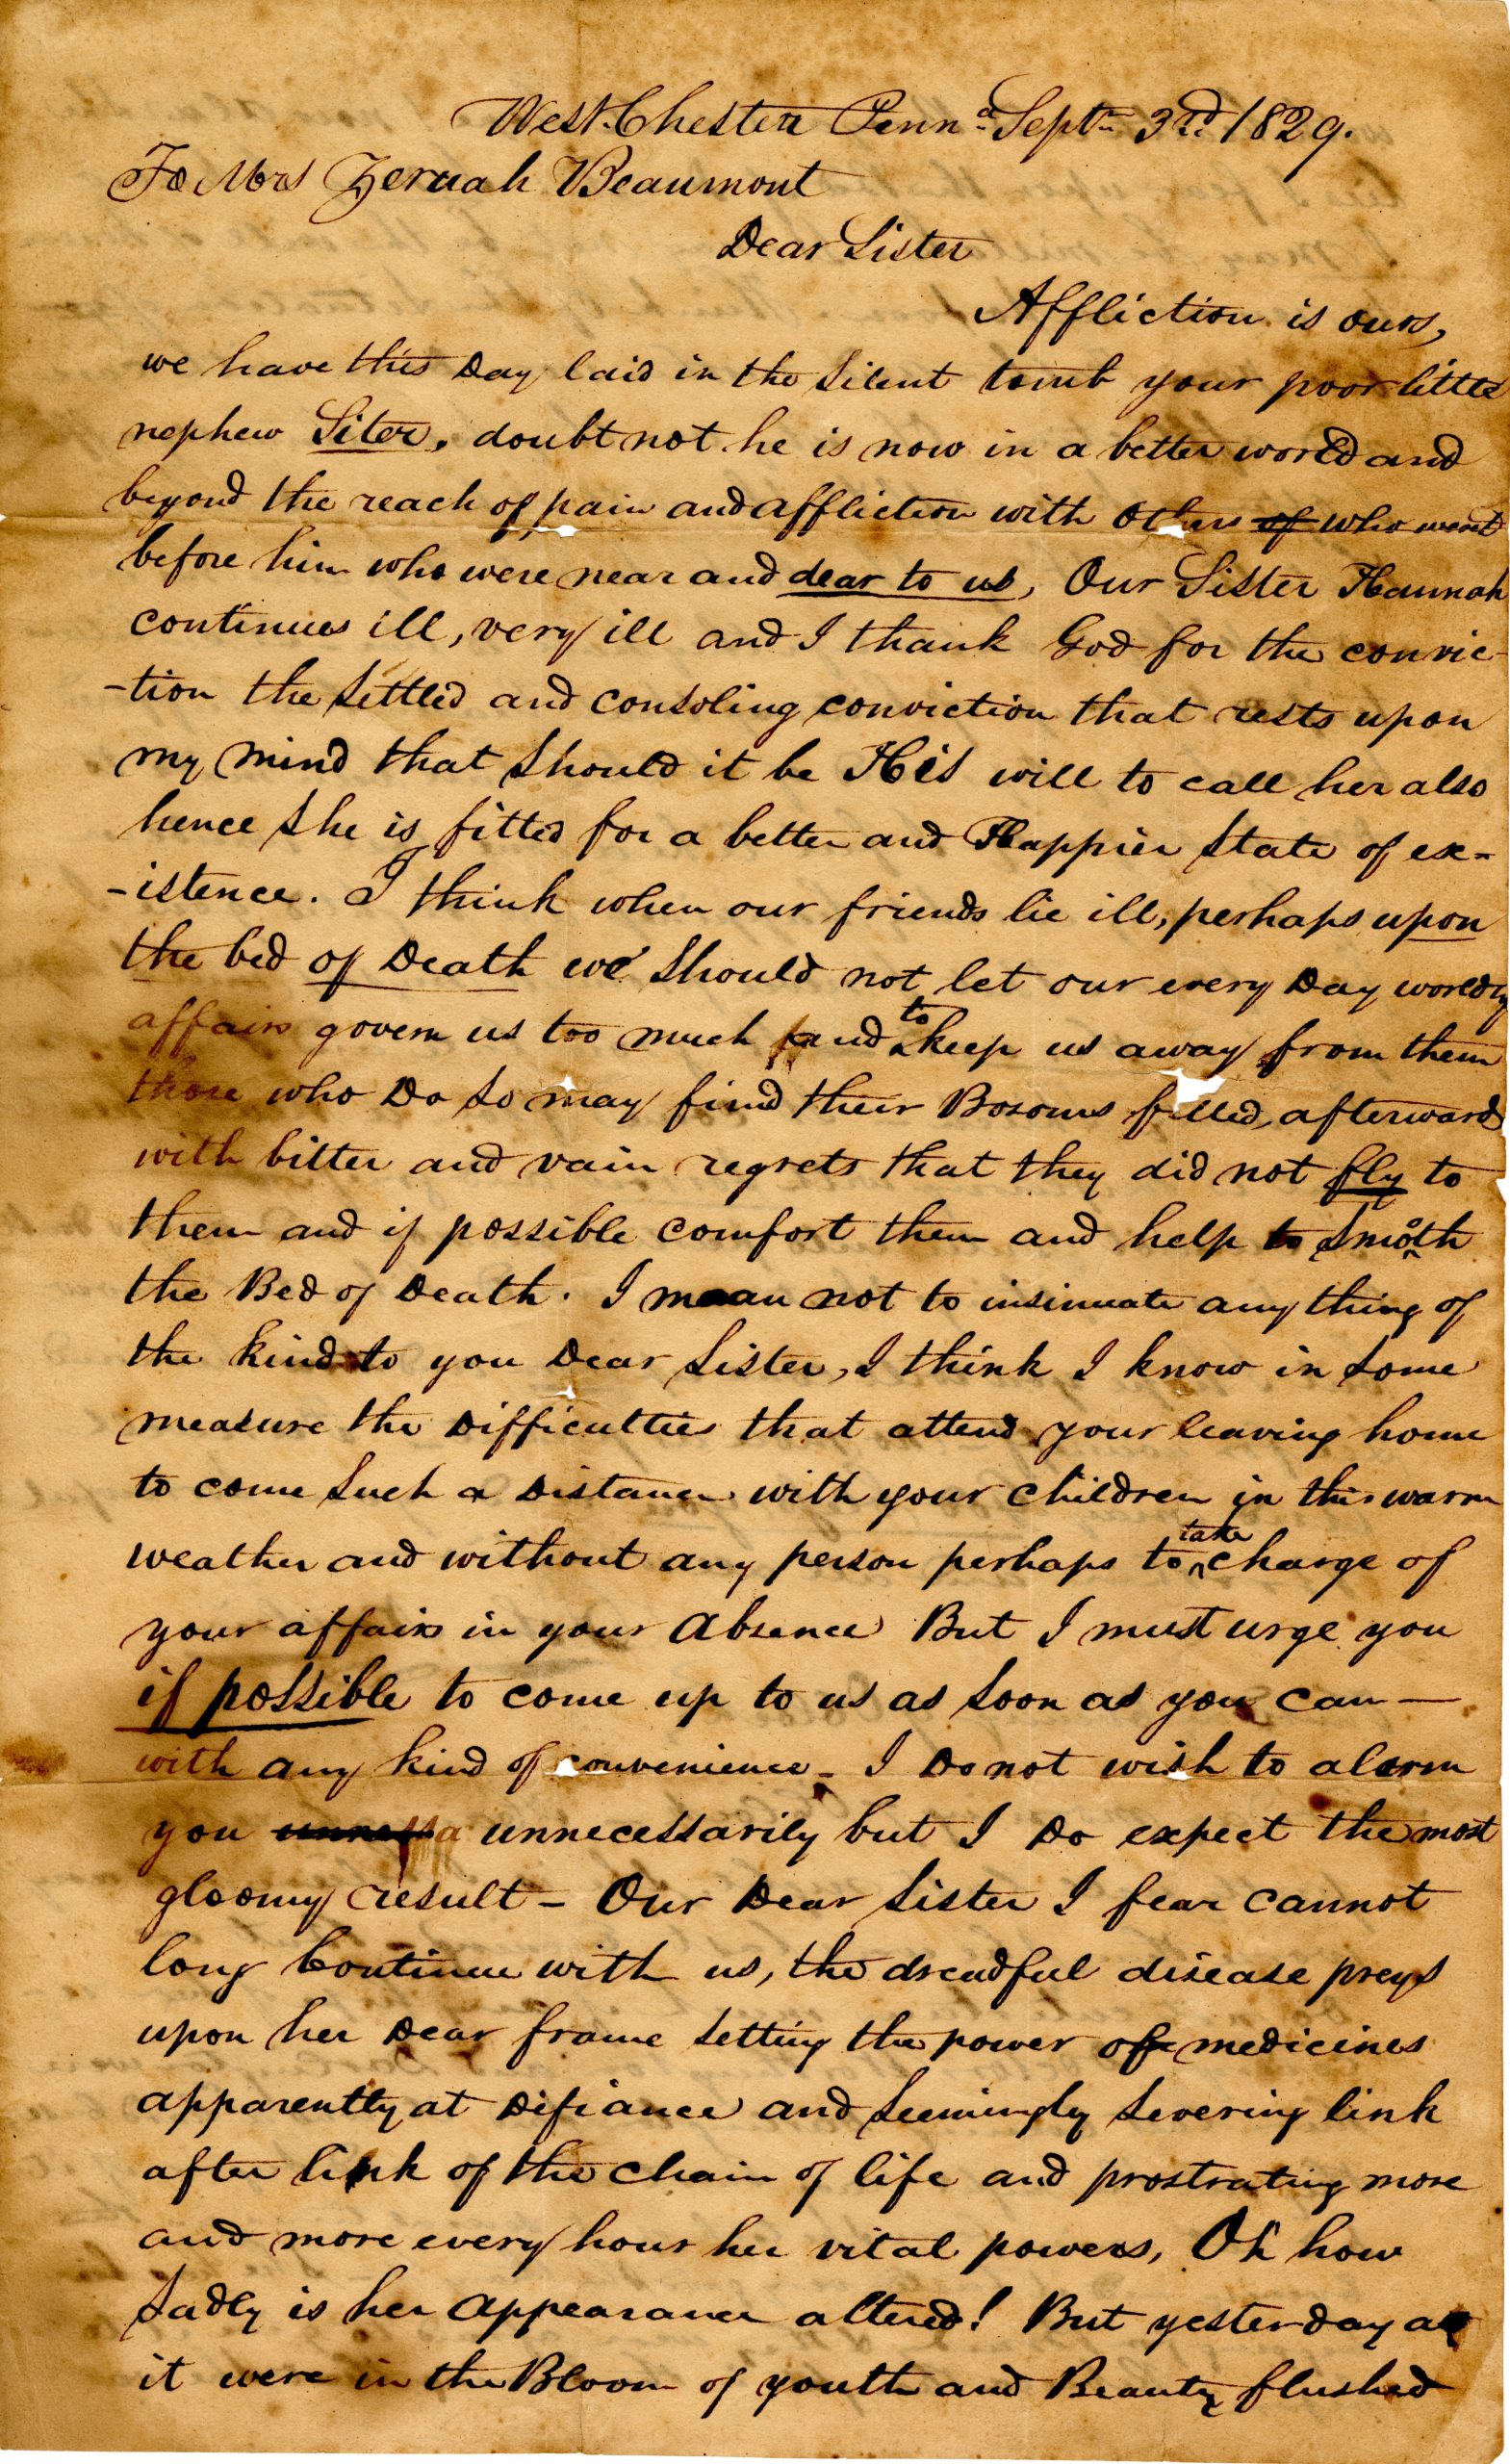 West-Chester Penna. Septr. 3rd 1829.
To Mrs Zeruah Beaumont
Dear Sister
Affliction is ours,
we have this Day laid in the silent tomb your poor little
nephew Siter, doubt not he is now in a better world and
beyond the reach of pain and affliction with others of who went
before him who were near and dear to us, Our Sister Hannah
continues ill, very ill and I thank God for the convic-
-tion the settled and consoling conviction that rests upon
my mind that should it be His will to call her also
hence she is fitted for a better and Happier state of ex-
-istence. I think when our friends lie ill, perhaps upon
the bed of Death we should not let our every Day worldly
affairs govern us too much and to keep us away from them
those who Do so may find their Bosoms filled, afterwards
with bitter and vain regrets that they did not fly to
them and if possible comfort them and help to smooth
the Bed of Death. I mean not to insinuate any thing of
the kind to you Dear Sister, I think I know in some
measure the Difficulties that attend your leaving home
to come such a Distance with your children in this warm
weather and without any person perhaps to take charge of
your affairs in your absence But I must urge you
if possible to come up to us as soon as you can —
with any kind of convenience - I Do not wish to alarm
you unnessa unnecessarily but I Do expect the most
gloomy result - Our Dear Sister I fear cannot
long Continue with us, the dreadful disease preys
upon her Dear frame setting the power of medicines
apparently at Difiance and seemingly severing link
after link of the chain of life and prostrating more
and more every hour her vital powers, Oh how
sadly is her appearance altered! But yesterday as
it were in the Bloom of youth and Beauty flushed